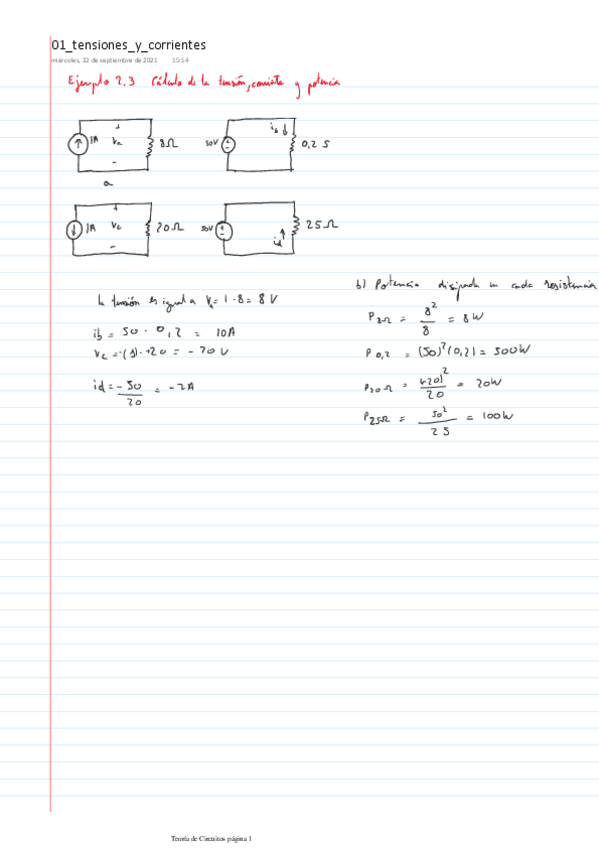 01_tensiones_y_corrientes
miércoles, 22 de septiembre de 2021 15:14
Ejemplo 2.3 Cálculo de la tensión, corriente y potencia
1A + Va - 8Ω 50V + - ib 0,2 S
a
1A + Vc - 20Ω 50V + - id 25Ω
la tensión es igual a Va = 1·8 = 8 V
ib = 50 · 0,2 = 10A
Vc = -(1)·+20 = -20 V
id = -50/20 = -2A
b) Potencia disipada en cada resistencia
P8Ω = 8²/8 = 8W
P0,2 = (50)²(0,2) = 500W
P20Ω = (-20)²/20 = 20W
P25Ω = 50²/25 = 100W
Teoría de Circuitos página 1